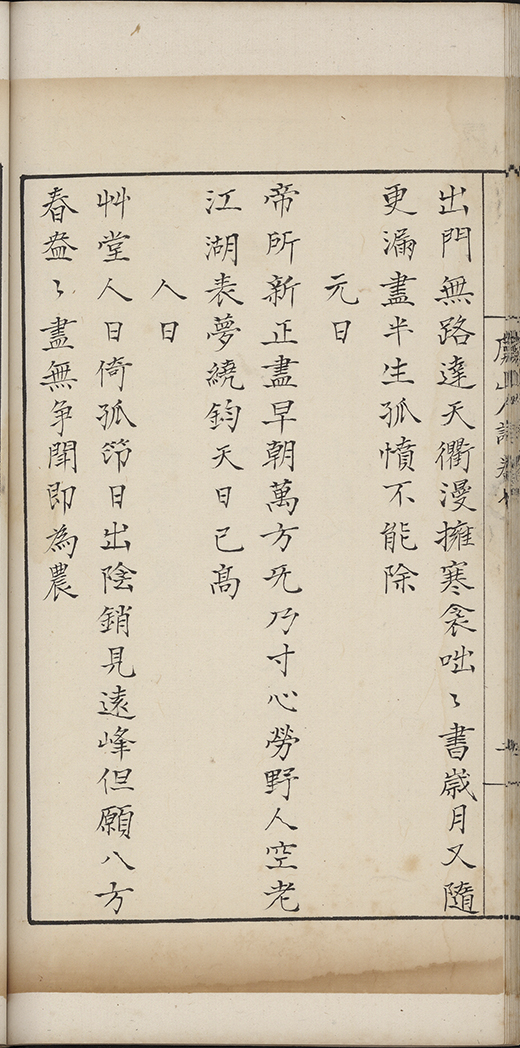 出門無路達天衢漫擁寒衾咄〻書歲月又隨
更漏盡半生孤憤不能除
元日
帝所新正盡早朝萬方旡乃寸心勞野人空老
江湖表夢繞鈞天日已高
人日
艸堂人日倚孤笻日出陰銷見遠峰但願八方
春盎〻盡無爭鬪即為農